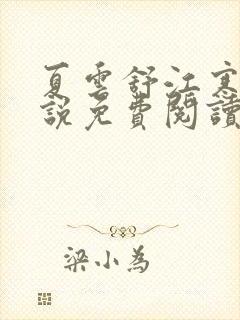 夏雲舒江寒
說免費閱讀
梁小為